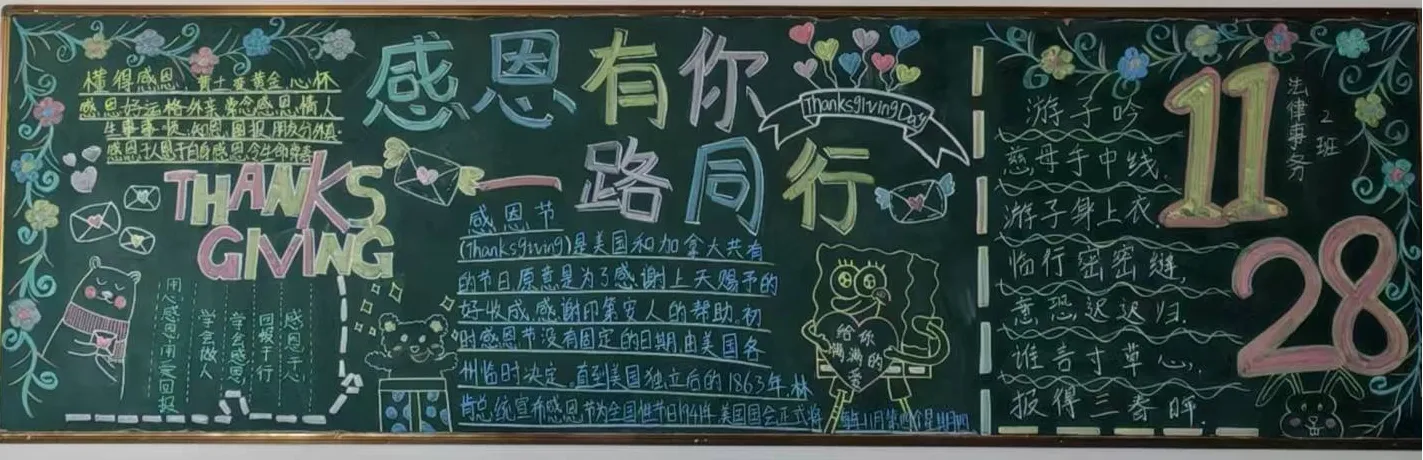 感恩有你
一路同行
Thanksgiving Day
懂得感恩,黄土变黄金,心怀
感恩,好运格外亲,常念感恩情,人
生事事顺,知恩图报,朋友分外真.
感恩于人恩于自身感恩,今生命
THANKS
GIVING
感恩于心
回报于行
学会感恩
学会做人
用心感恩用爱回报
感恩节
(Thanksgiving)是美国和加拿大共有
的节日原意是为了感谢上天赐予的
好收成,感谢印第安人的帮助.初
时感恩节没有固定的日期,由美国各
州临时决定.直到美国独立后的1863年,林
肯总统宣布感恩节为全国性节日1941年,美国国会正式将
每年11月第四个星期四
给你
满满的
爱
游子吟
慈母手中线,
游子身上衣.
临行密密缝,
意恐迟迟归.
谁言寸草心,
报得三春晖.
11
28
法律事务
2班